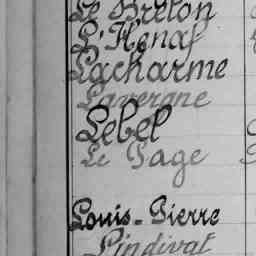 Le Breton
L'Hénaf
Lacharme
Lavergne
Lebel
Le Page
Louis-Pierre
Lindivat